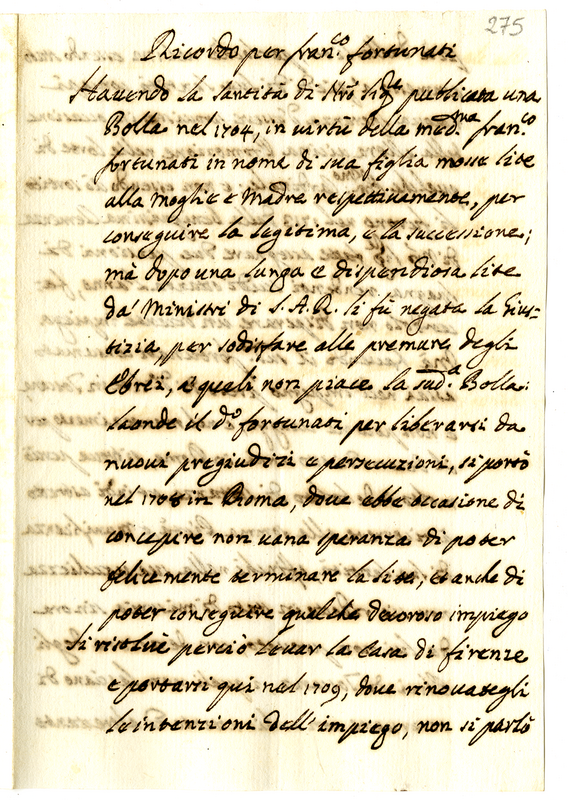 275
Ricordo per Fran.co Fortunati
Havendo la Santità di N̄ro Sig.re publicata una
Bolla nel 1704, in virtù della med.ma Fran.co
Fortunati in nome di sua figlia move lite
alla Moglie e Madre respettivamente, per
conseguire la legitima, e la successione;
mà dopo una lunga e dispendiosa lite
da' Ministri di S.A.R. li fù negata la Gius=
tizia, per sodisfare alle premure degli
Ebrei, a' quali non piace la sud.a Bolla:
laonde il d.o Fortunati per liberarsi da
nuovi pregiudizi e persecuzioni, si portò
nel 1708 in Roma, dove ebbe occasione di
concepire non vana speranza di poter
felicemente terminare la lite, et anche di
poter conseguire qualche decoroso impiego
Si risolvè perciò levar la Casa di Firenze
e portarsi quì nel 1709, dove rinovategli
le intenzioni dell' impiego, non si parlò